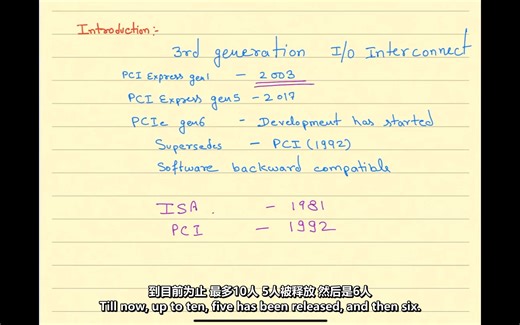 Introduction:-
3rd generation I/O Interconnect
PCI Express gen1 - 2003
PCI Express gen5 - 2017
PCIe gen6 - Development has started
Supersedes - PCI (1992)
Software backward compatible
ISA. - 1981
PCI - 1992
到目前为止 最多10人 5人被释放 然后是6人
Till now, up to ten, five has been released, and then six.